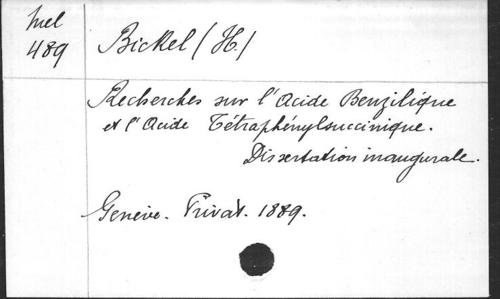 Mel
489
Bickel (H.)
Recherches sur l'Acide Benzilique
et l'Acide Tétraphénylsuccinique.
Dissertation inaugurale.
Genève. Privat. 1889.